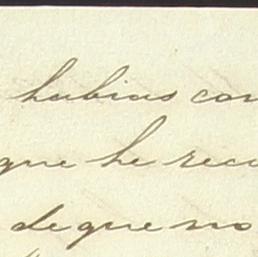 habias con
que he reco
de que no